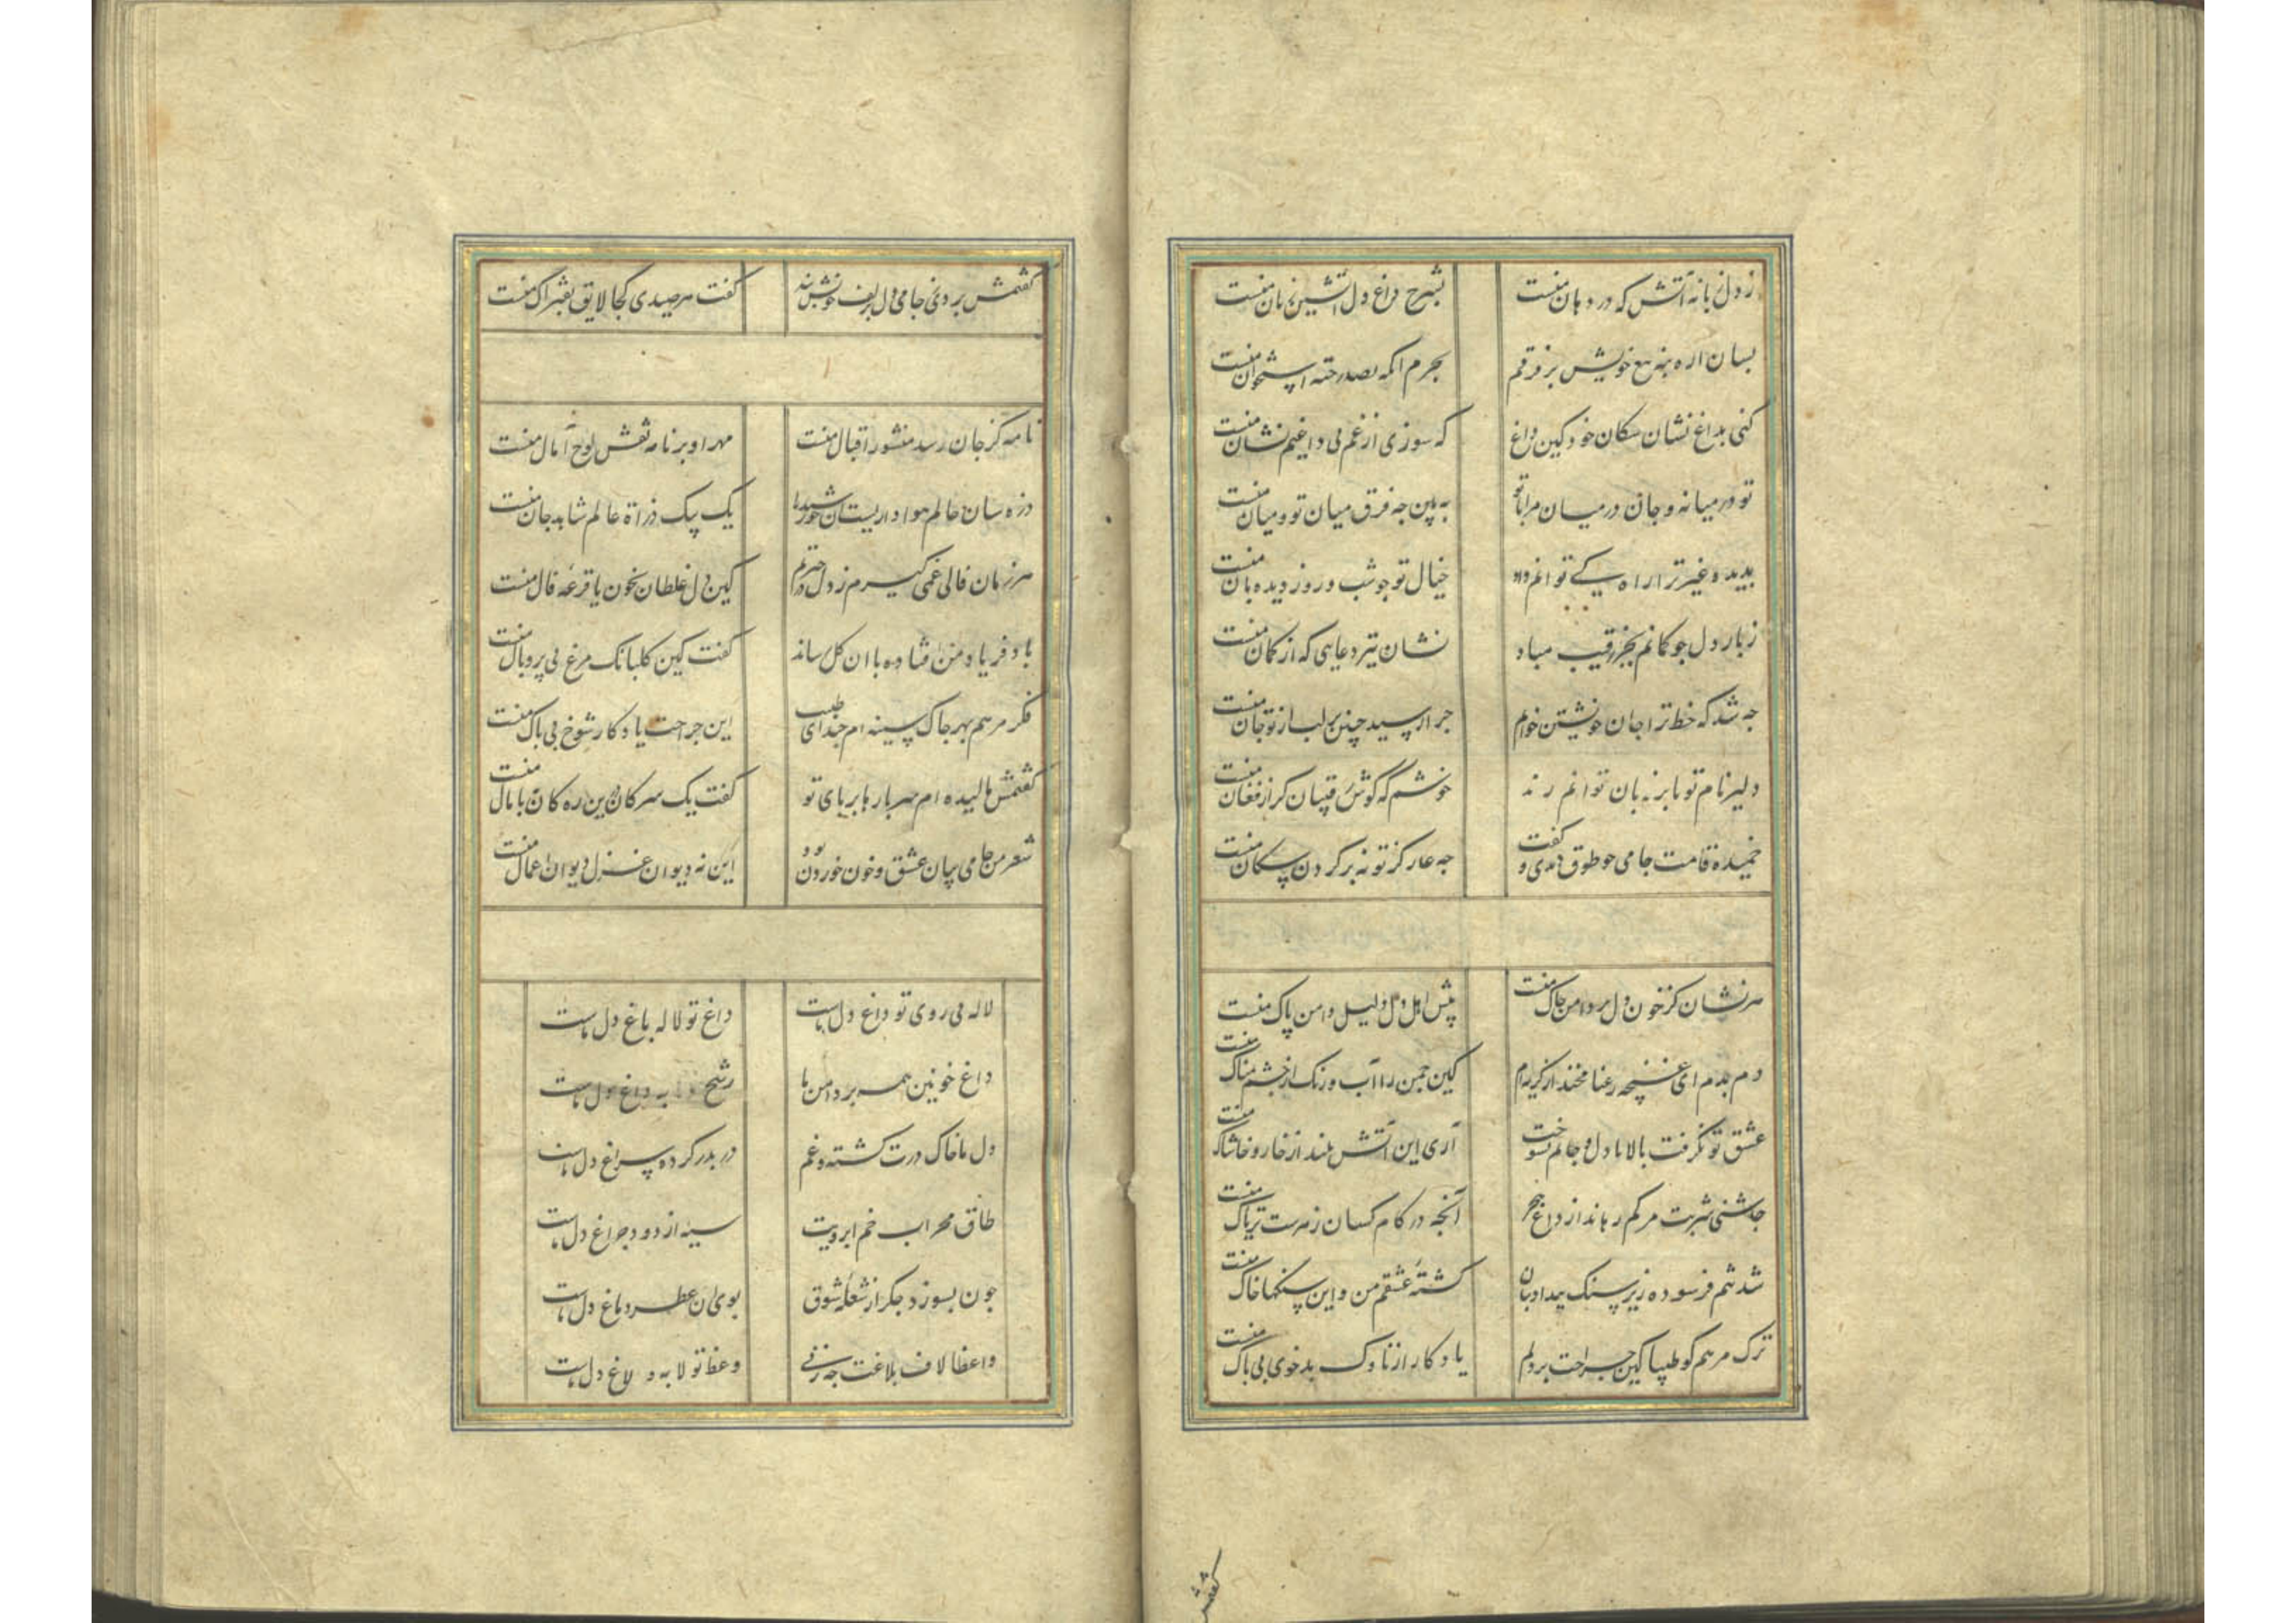 ز دل زبانه آتش که در دهان منست بشرح داغ دل آتشین زبان منست
بسان اره بنه تیغ خویش بر فرقم بجرم آنکه بصد رخنه استخوان منست
کنی بداغ نشان سکان خود کین داغ که سوزی از غم بی داغیم نشان منست
تو در میانه و جان در میان مرا با تو به بین جه فرق میان تو و میان منست
بدیده غیر ترا راه کی توانم داد خیال تو جو شب و روز دیده بان منست
ز بار دل جو کمانم بجز رقیب مباد نشان تیر دعایی که از کمان منست
جه شد که خط ترا جان خویشتن خوانم جرا رسید جنین بر لب از تو جان منست
دلیر نام تو تا بر زبان توانم راند خوشم که گوش رقیبان کر از فغان منست
خمیده قامت جامی جو طوق دیدی و گفت جه عار کز تو نه بر کردن سکان منست
هر نشان کز خون دل بر دامن جاک منست پیش اهل دل دلیل دامن پاک منست
دم بدم ای غنجه رعنا مخند از کریه ام کین جمن را آب و رنک از جشم نمناک منست
عشق تو نگرفت بالا تا دل و جانم نسوخت آری این آتش بلند از خار و خاشاک منست
جاشنی شربت مرکم رهاند از داغ هجر آنجه در کام کسان زهرست تریاک منست
شد تنم فرسوده زیر سنک بیداد بتان کشتهٔ عشقم من و این سنکها خاک منست
ترک مرهم کو طبیبا کین جراحت بر دلم یادکار از ناوک بدخوی بی باک منست
گفتمش
گفتمش بردی جامی دل بزلف خویش بند گفت هر صیدی کجا لایق بفتراک منست
نامه کز جان رسد منشور اقبال منست مهر او بر نامه نقش لوح آمال منست
ذره سان عالم هوادار یست آن خورشید را یک بیک ذرات عالم شاهد حال منست
هر زمان فالی غمی کیرم ز دل در آخرم کین دل غلطان بخون یا قرعه فال منست
باد فریاد من افتاده با آن کل رساند گفت کین کلبانک مرغ بی پر و بال منست
فکر مرهم بهر جاک سینه ام جند ای طبیب این جراحت یادکار شوخ بی باک منست
گفتمش مالیده ام سر بارها بر پای تو گفت یک سر کان درین ره کان نه پامال منست
شعر من جامی بیان عشق و خون خوردن بود این نه دیوان غزل دیوان اعمال منست
لاله بی روی تو داغ دل ماست داغ تو لاله باغ دل ماست
داغ خونین همه بر دامن ما رشح به داغ دل ماست
دل ما خاک درت کشته و غم در بدر کرده سراغ دل ماست
طاق محراب خم ابرویت سیه از دود جراغ دل ماست
جون بسوزد جکر از شعله شوق بوی آن عطر دماغ دل ماست
واعظا لاف بلاغت جه زنی وعظ تو لابه و لاغ دل ماست